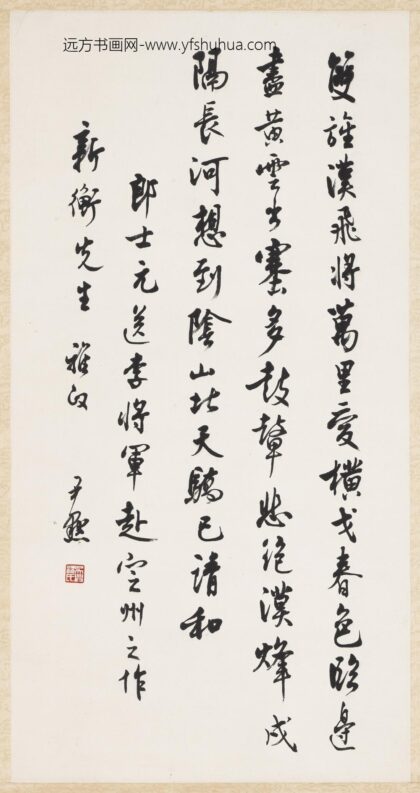 远方书画网-www.yfshuhua.com
雙旌漢飛將萬里受橫戈春色臨邊
盡黃雲出塞多鼓鼙悲絕漠烽戍
隔長河想到陰山北天驕已請和
郎士元送李將軍赴定州之作
新衡先生 雅政 尹默